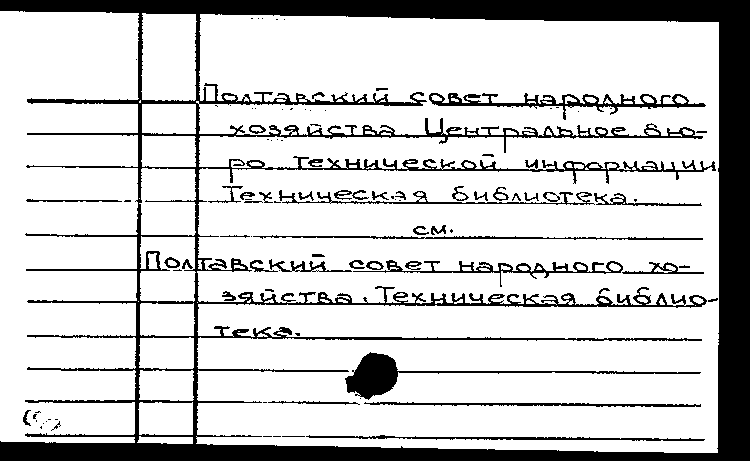 Полтавский совет народного
хозяйства. Центральное бю-
ро технической информации
Техническая библиотека.
см.
Полтавский совет народного хо-
зяйства. Техническая библио-
тека.